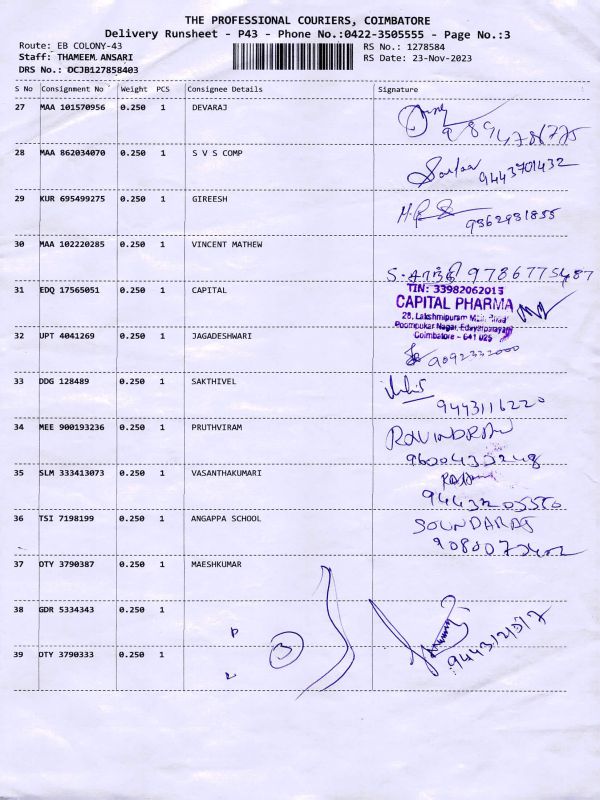 THE PROFESSIONAL COURIERS, COIMBATORE
Delivery Runsheet - P43 - Phone No.:0422-3505555 - Page No.:3
Route: EB COLONY-43 RS No.: 1278584
Staff: THAMEEM ANSARI RS Date: 23-Nov-2023
DRS No.: DCJB127858403
S No Consignment No Weight PCS Consignee Details Signature
27 MAA 101570956 0.250 1 DEVARAJ
28 MAA 862034070 0.250 1 S V S COMP
9443701432
29 KUR 695499275 0.250 1 GIREESH
9362931855
30 MAA 102220285 0.250 1 VINCENT MATHEW
31 EDQ 17565051 0.250 1 CAPITAL
TIN: 33982062013
CAPITAL PHARMA
28, Lakshmipuram
Nagar,
Coimbatore - 641 025
32 UPT 4041269 0.250 1 JAGADESHWARI
9092332000
33 DDG 128489 0.250 1 SAKTHIVEL
9443116220
34 MEE 900193236 0.250 1 PRUTHVIRAM
RAVINDRAN
9600433248
35 SLM 333413073 0.250 1 VASANTHAKUMARI
36 TSI 7198199 0.250 1 ANGAPPA SCHOOL
SOUNDARAJ
37 DTY 3790387 0.250 1 MAESHKUMAR
38 GDR 5334343 0.250 1
P
3
39 DTY 3790333 0.250 1